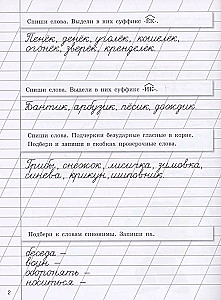 Спиши слова. Выдели в них суффикс -ЁК-.
Пенёк, денёк, уголёк, кошелек,
огонёк, зверёк, кренделёк.
Спиши слова. Выдели в них суффикс -ИК-.
Бантик, арбузик, пёсик, дождик.
Спиши слова. Подчеркни безударные гласные в корне.
Подбери и запиши в скобках проверочные слова.
Грибы, снежок, лисичка, зимовка,
синева, крикун, шиповник.
Подбери к словам синонимы. Запиши их.
беседа –
воин –
оборонять –
носиться –
2